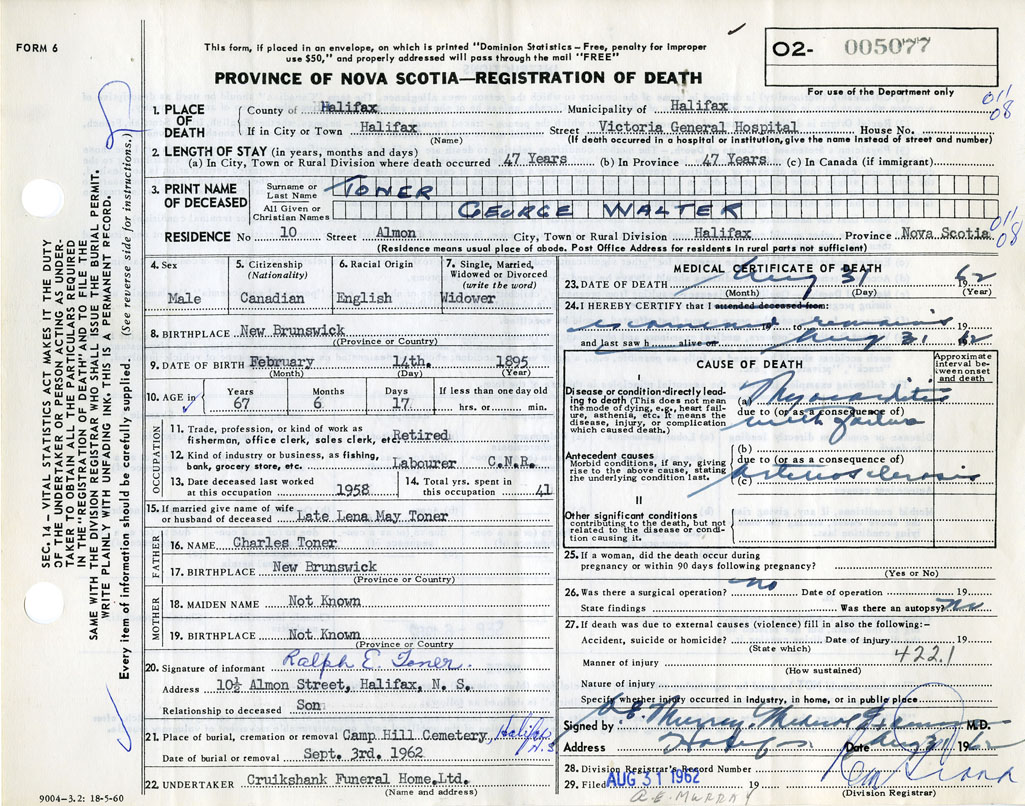 FORM 6
This form, if placed in an envelope, on which is printed "Dominion Statistics – Free, penalty for improper
use $50," and properly addressed will pass through the mail "FREE"
O2- 005077
For use of the Department only
PROVINCE OF NOVA SCOTIA—REGISTRATION OF DEATH
011
08
1. PLACE OF DEATH
County of Halifax Municipality of Halifax
If in City or Town Halifax Street Victoria General Hospital House No.
(Name) (If death occurred in a hospital or institution, give the name instead of street and number)
2. LENGTH OF STAY (in years, months and days)
(a) In City, Town or Rural Division where death occurred 47 Years (b) In Province 47 Years (c) In Canada (if immigrant)
3. PRINT NAME OF DECEASED
Surname or Last Name TONER
All Given or Christian Names GEORGE WALTER
011
08
RESIDENCE No 10 Street Almon City, Town or Rural Division Halifax Province Nova Scotia
(Residence means usual place of abode. Post Office Address for residents in rural parts not sufficient)
4. Sex
Male
5. Citizenship (Nationality)
Canadian
6. Racial Origin
English
7. Single, Married, Widowed or Divorced (write the word)
Widower
8. BIRTHPLACE New Brunswick
(Province or Country)
9. DATE OF BIRTH February 14th. 1895
(Month) (Day) (Year)
10. AGE in
Years Months Days If less than one day old
67 6 17 hrs. or min.
OCCUPATION
11. Trade, profession, or kind of work as
fisherman, office clerk, sales clerk, etc. Retired
12. Kind of industry or business, as fishing,
bank, grocery store, etc. Labourer C.N.R.
13. Date deceased last worked
at this occupation 1958
14. Total yrs. spent in
this occupation 41
15. If married give name of wife
or husband of deceased Late Lena May Toner
FATHER
16. NAME Charles Toner
17. BIRTHPLACE New Brunswick
(Province or Country)
MOTHER
18. MAIDEN NAME Not Known
19. BIRTHPLACE Not Known
(Province or Country
20. Signature of informant Ralph E. Toner.
Address 10½ Almon Street, Halifax, N. S.
Relationship to deceased Son
21. Place of burial, cremation or removal Camp Hill Cemetery, Halifax
N.S.
Date of burial or removal Sept. 3rd. 1962
22. UNDERTAKER Cruikshank Funeral Home, Ltd.
(Name and address)
9004–3.2: 18-5-60
MEDICAL CERTIFICATE OF DEATH
23. DATE OF DEATH Aug 31 1962
(Month) (Day) (Year)
24. I HEREBY CERTIFY that I attended deceased from:
examined 19 to remains 19
and last saw h alive on Aug 31 1962
CAUSE OF DEATH
Approximate interval between onset and death
I
Disease or condition directly leading to death (This does not mean the mode of dying, e.g., heart failure, asthenia, etc. It means the disease, injury, or complication which caused death.)
(a) Myocarditis
due to (or as a consequence of)
with failure
Antecedent causes
Morbid conditions, if any, giving rise to the above cause, stating the underlying condition last.
(b)
due to (or as a consequence of)
(c) Arteriosclerosis
II
Other significant conditions
contributing to the death, but not related to the disease or condition causing it.
25. If a woman, did the death occur during
pregnancy or within 90 days following pregnancy?
(Yes or No)
26. Was there a surgical operation? no Date of operation 19
State findings Was there an autopsy? no
27. If death was due to external causes (violence) fill in also the following:-
Accident, suicide or homicide? Date of injury 19
(State which)
422.1
Manner of injury
(How sustained)
Nature of injury
Specify whether injury occurred in industry, in home, or in public place
Signed by Murray Medical Examiner M.D.
Address Halifax Date Aug 31 1962
28. Division Registrar's Record Number
29. Filed AUG 31 1962 19
(Division Registrar)
A.E. MURRAY
SEC. 14 – VITAL STATISTICS ACT MAKES IT THE DUTY
OF THE UNDERTAKER OR PERSON ACTING AS UNDER-
TAKER TO OBTAIN ALL THE PARTICULARS REQUIRED
IN THE "REGISTRATION OF DEATH" AND TO FILE THE
SAME WITH THE DIVISION REGISTRAR WHO SHALL ISSUE THE BURIAL PERMIT.
WRITE PLAINLY WITH UNFADING INK. THIS IS A PERMANENT RECORD.
Every item of information should be carefully supplied. (See reverse side for instructions.)